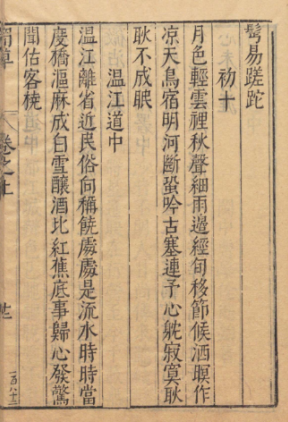 鬢易蹉跎
初十
月色輕雲裡秋聲細雨邊經旬移節候洒暝作
凉天鳥宿明河斷蛩吟古塞連予心躭寂寞耿
耿不成眠
溫江道中
溫江離省近民俗向稱饒處處是流水時時當
慶橋漚麻成白雪釀酒比紅蕉底事歸心發驚
聞估客橈
卷之五